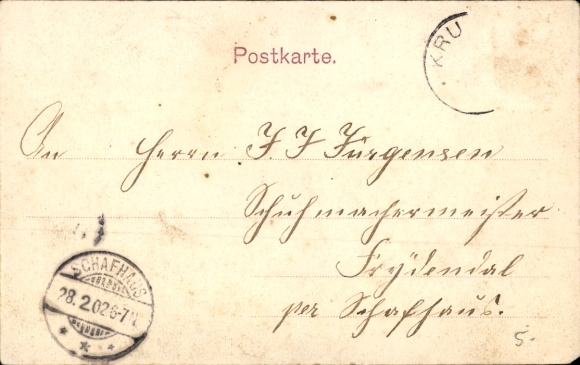 KRU
Postkarte.
An Herrn J. J. Jürgensen
Schuhmachermeister
Frydendal
per Schafhaus.
SCHAFHAUS
28.2.02 6-7N.
5.